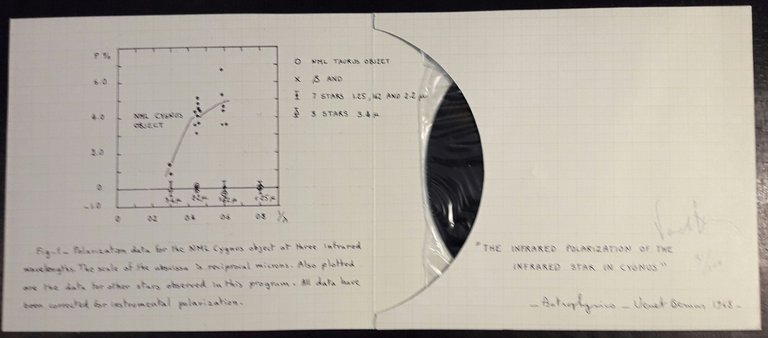 P %
6.0
4.0
2.0
0
-1.0
NML CYGNUS
OBJECT
3.4 μ
2.2 μ
1.62 μ
1.25 μ
0 0.2 0.4 0.6 0.8 1/λ
O NML TAURUS OBJECT
x β AND
7 STARS 1.25, 1.62 AND 2.2 μ
3 STARS 3.4 μ
Fig. 1 - Polarization data for the NML Cygnus object at three infrared
wavelengths. The scale of the abscissa is reciprocal microns. Also plotted
are the data for other stars observed in this program. All data have
been corrected for instrumental polarization.
"THE INFRARED POLARIZATION OF THE
INFRARED STAR IN CYGNUS"
1968